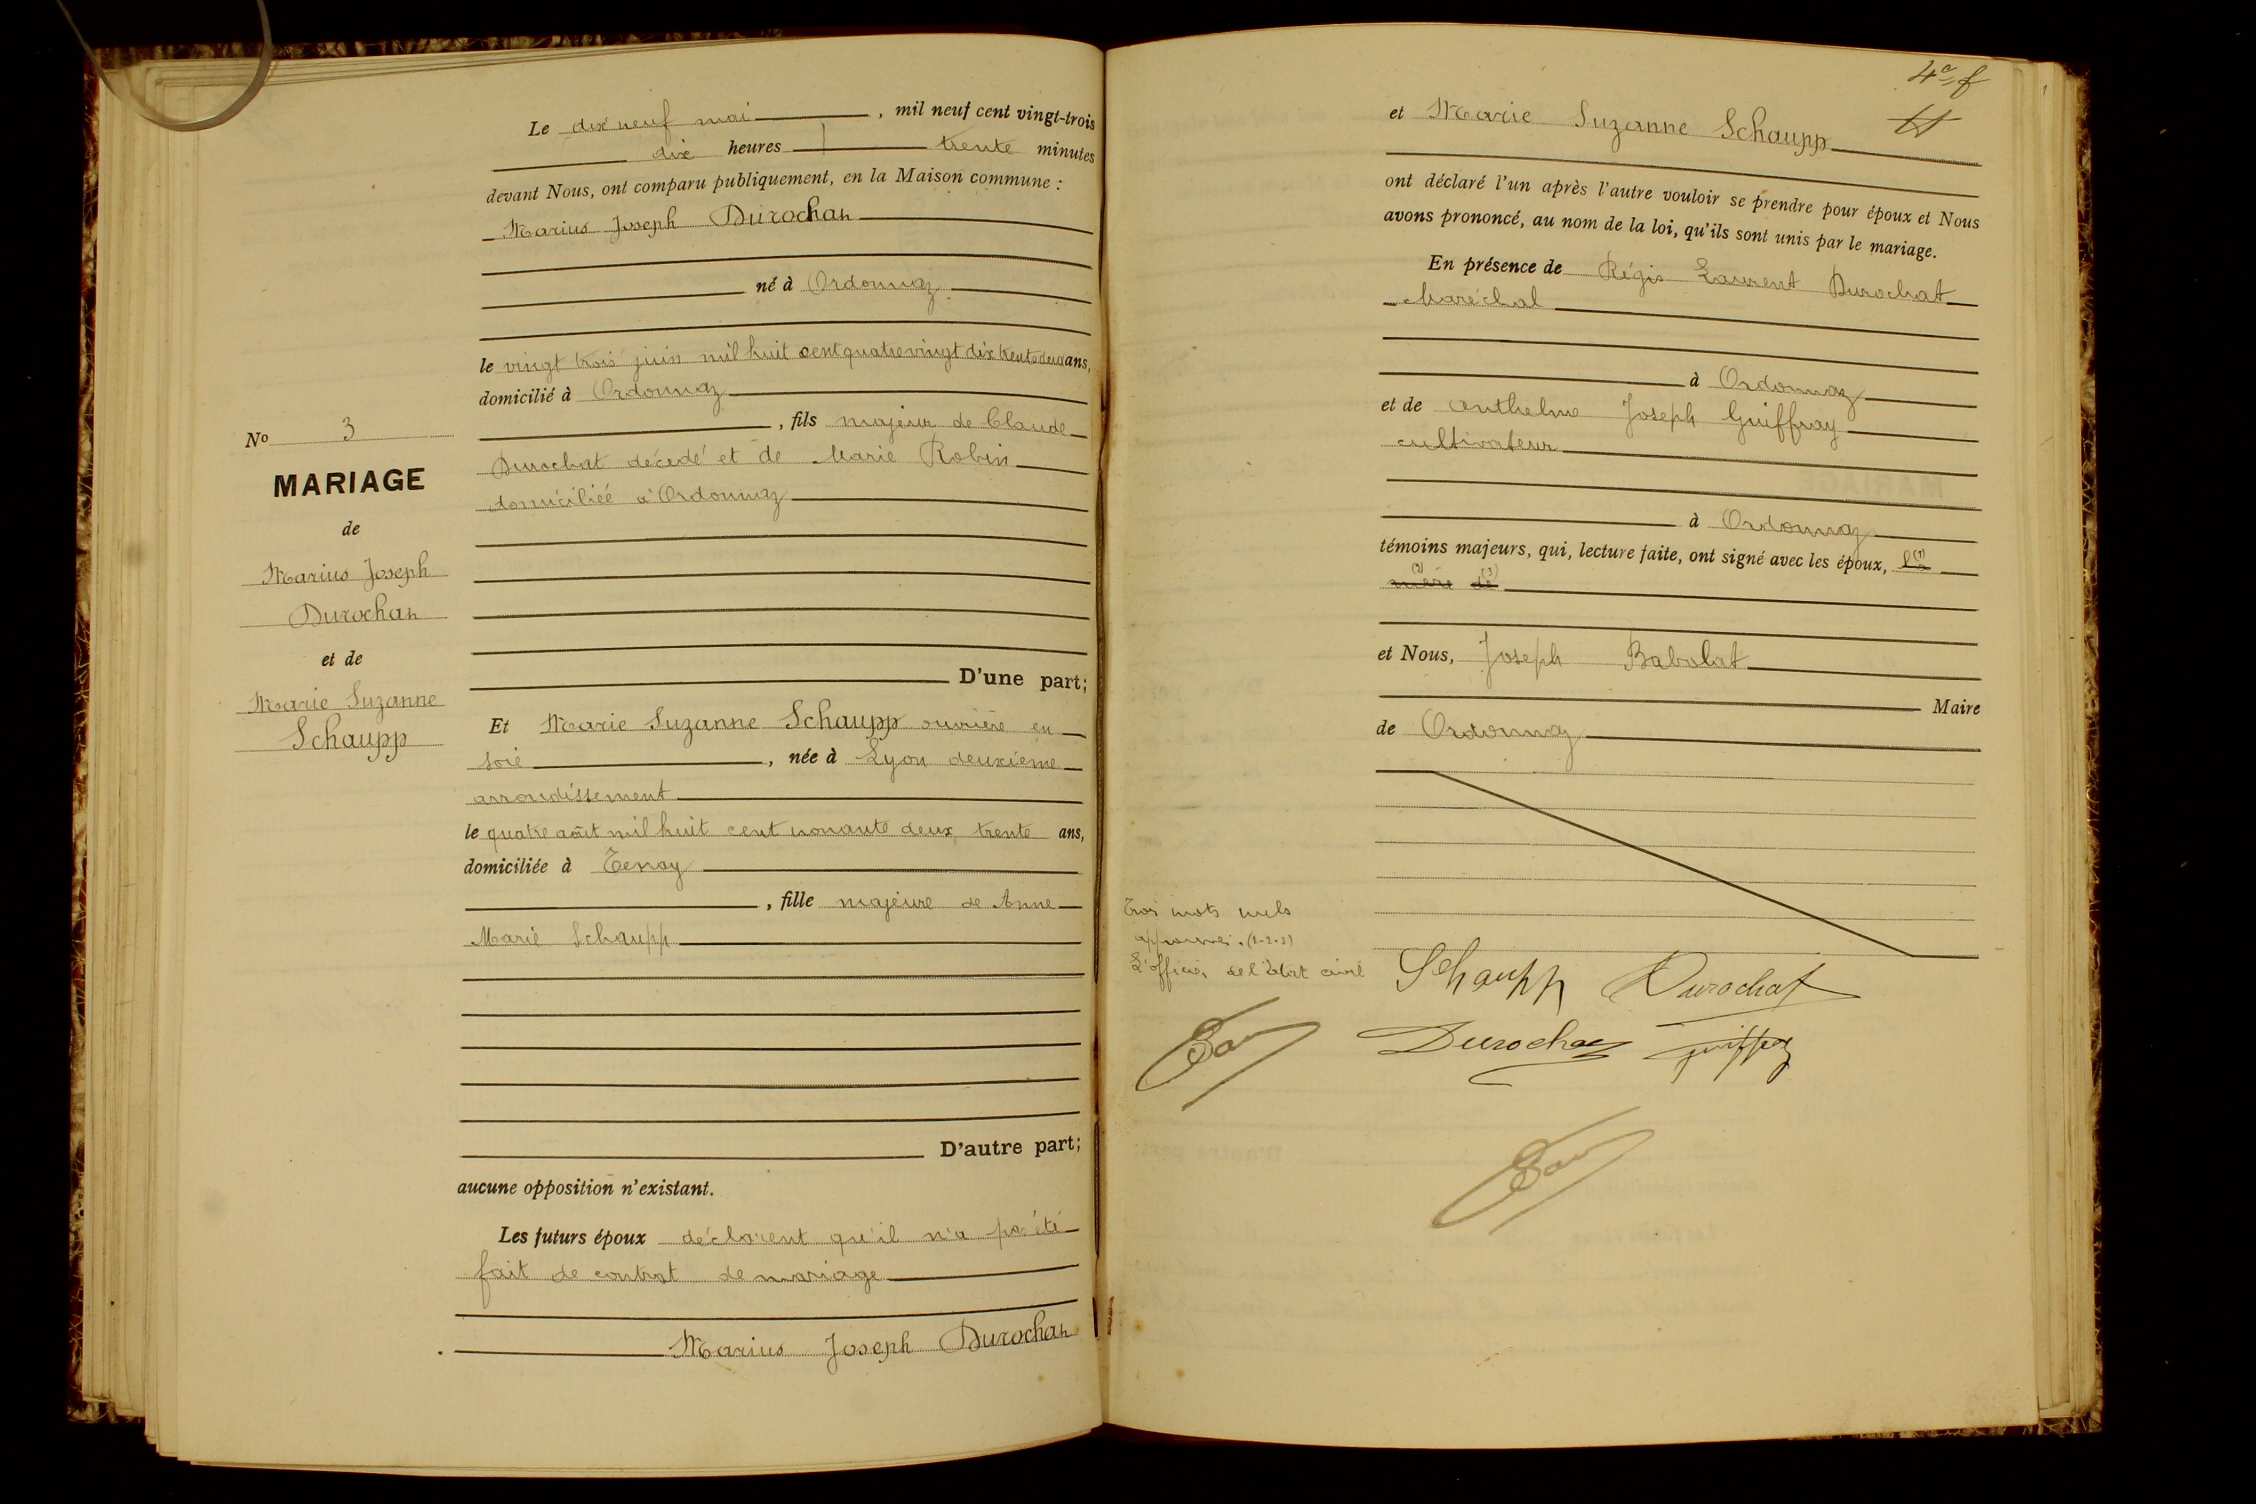 Le dix neuf mai, mil neuf cent vingt-trois
dix heures trente minutes
devant Nous, ont comparu publiquement, en la Maison commune :
Marius Joseph Durochat
né à Ordonnaz
le vingt trois juin mil huit cent quatre vingt dix trente deux ans,
domicilié à Ordonnaz
, fils majeur de Claude
Durochat décédé et de Marie Robin
domiciliée à Ordonnaz
D'une part;
No 3
MARIAGE
de
Marius Joseph
Durochat
et de
Marie Suzanne
Schaupp
Et Marie Suzanne Schaupp ouvrière en
soie, née à Lyon deuxième
arrondissement
le quatre août mil huit cent nonante deux, trente ans,
domiciliée à Tenay
, fille majeure de Anne
Marie Schaupp
D'autre part;
aucune opposition n'existant.
Les futurs époux déclarent qu'il n'a pas été
fait de contrat de mariage
Marius Joseph Durochat
4e f
et Marie Suzanne Schaupp
ont déclaré l'un après l'autre vouloir se prendre pour époux et Nous
avons prononcé, au nom de la loi, qu'ils sont unis par le mariage.
En présence de Régis Laurent Durochat
Maréchal
à Ordonnaz
et de Anthelme Joseph Guiffray
cultivateur
à Ordonnaz
témoins majeurs, qui, lecture faite, ont signé avec les époux, la (1)
mère (2) de (3)
et Nous, Joseph Babolat
Maire
de Ordonnaz
Trois mots nuls
approuvés. (1-2-3)
L'officier de l'état civil
Schaupp Durochat
Durochat Guiffray